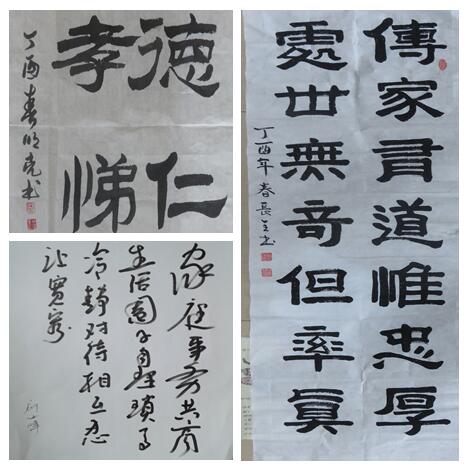 德仁
孝悌
丁酉春明亮书
傳家有道惟忠厚
處世無奇但率真
丁酉年春長
家庭事务共商
生活圈子理琐事
冷静对待相互忍
让宽容